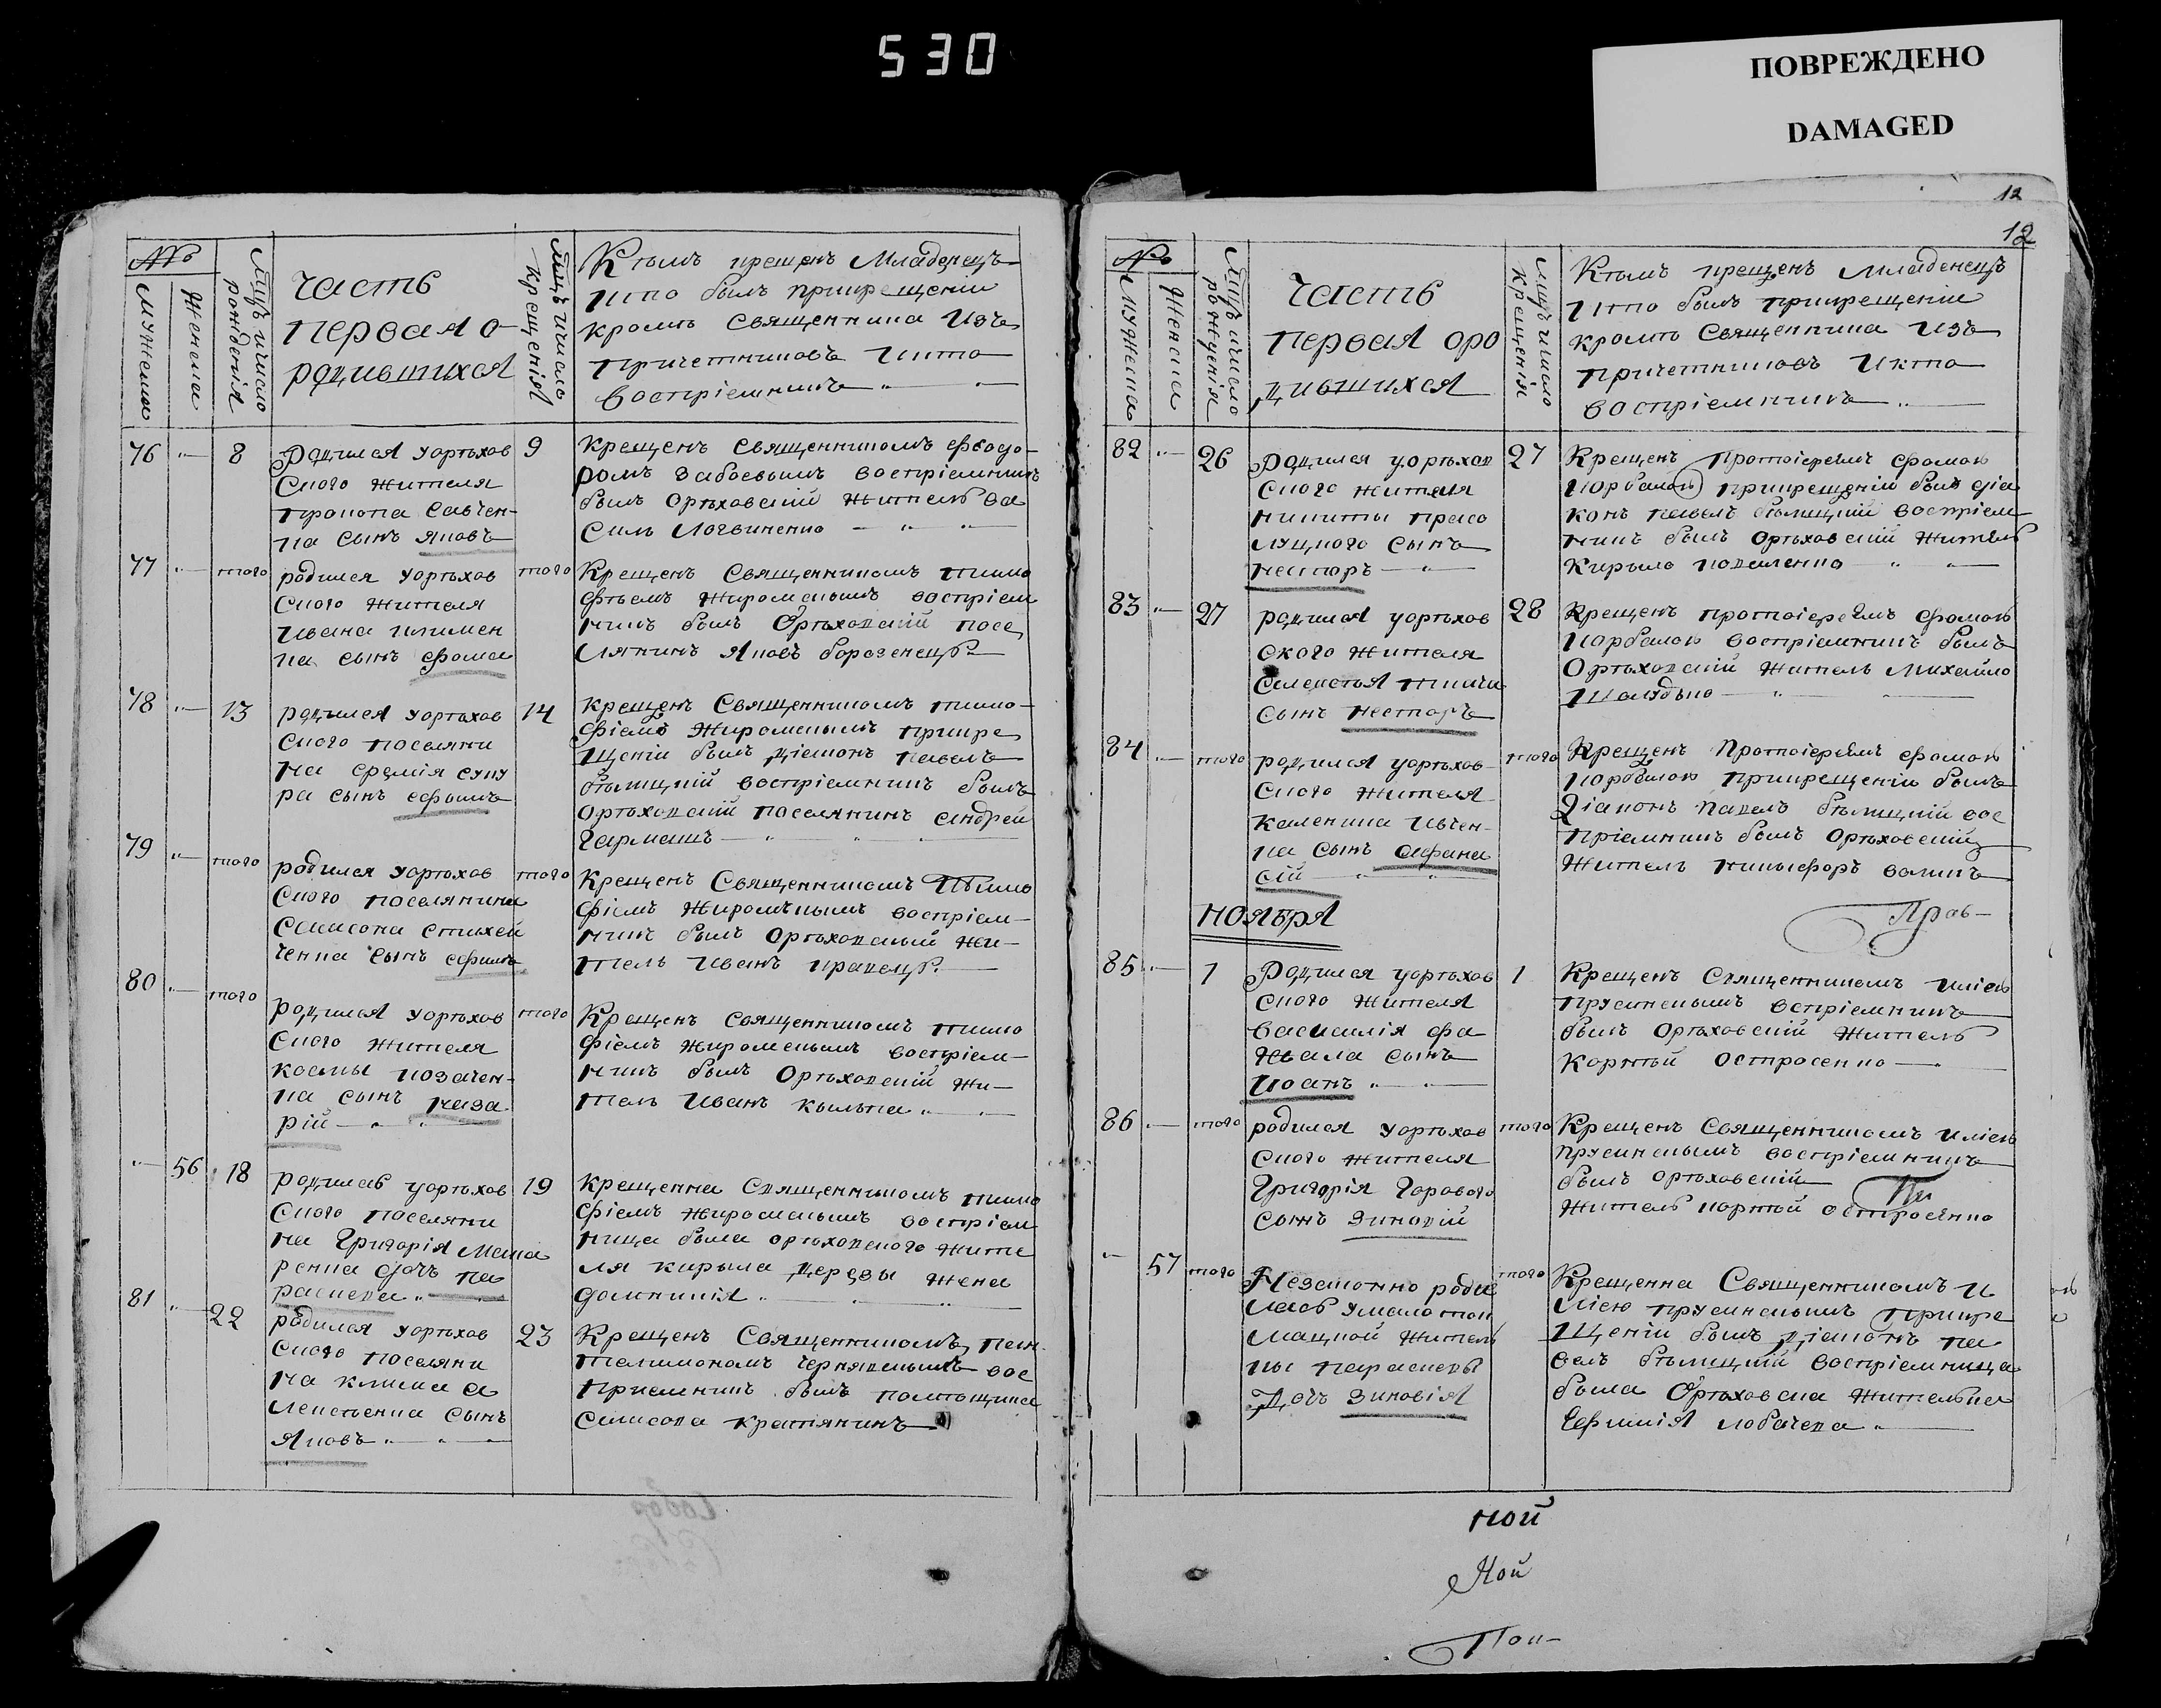 530
ПОВРЕЖДЕНО
DAMAGED
№
Мужеска
Женска
Мцъ и число рожденія
Часть
первая о
родившихся
Мцъ и число крещенія
Кѣмъ крещенъ Младенецъ
и кто былъ при крещеніи
кромѣ Священника изъ
причетниковъ и кто
Воспріемникъ „ —
76 „ 8
Родился у орѣхов
ского жителя
Прокопа Савчен-
ка сынъ Яковъ
9
Крещенъ Священникомъ Феодо-
ромъ Забоевымъ воспріемникъ
былъ Орѣховскій житель Ва
силь Логвиненко — „ „
77 „ того
родился у орѣхов
ского жителя
Ивана Климен
ка сынъ Фома
того
Крещенъ Священникомъ Тимо
фѣемъ Жироменкымъ воспріем
никъ былъ Орѣховскій посе
лянинъ Яковъ борозенецъ —
78 „ 13
родился у орѣхов
ского поселяни
на
ра сынъ Ефымъ
14
Крещенъ Священникомъ тимо-
фіемъ Жироменкымъ при кре
щеніи былъ Діаконъ Павелъ
бѣлицкій воспріемникъ былъ
Орѣховскій поселянинъ Андрей
Гармашъ — „ „ „
79 „ того
родился у орѣхов
ского поселянина
Самсона Стихей
ченка сынъ Ефимъ
того
Крещенъ Священникомъ Тимо
фіемъ Жироменкымъ воспріем-
никъ былъ Орѣховскый жи-
тель Иванъ Кравецъ. —
80 „ того
родился у орѣхов
ского жителя
космы козачен-
ка сынъ Наза
рій — „ „
того
Крещенъ Священникомъ тимо
фіемъ жироменкымъ воспріем-
никъ былъ Орѣховскій жи-
тель Иванъ „ —
„ 56 18
родилась у орѣхов
ского поселяни
на Григорія Мака
ренка дочь Па
раскева „ —
19
Крещенна Священникомъ тимо
фіемъ жироменкымъ воспріем
ница была орѣховского жите
ля кирыла дерезы жена
домникія „ „ „ —
81 „ 22
родился у орѣхов
ского поселяни
на клима а
лексѣенка сынъ
Яковъ „ „ —
23
Крещенъ Священникомъ Пан
телимономъ Чернявскымъ вос
приемникъ былъ помѣщика
Самсона крестянинъ —
12
12
№
Мужеска
Женска
Мцъ и число рожденія
Часть
первая о ро
дившихся
Мцъ и число крещенія
Кѣмъ крещенъ Младенецъ
и кто былъ при крещеніи
кромѣ Священника изъ
причетниковъ и кто
воспріемникъ „ —
82 „ 26
Родился у орѣхов
ского жителя
никиты прасо
луцкого сынъ
несторъ — „ —
27
Крещенъ Протоіереемъ Фомою
Корбаlою при крещеніи былъ діа
конъ павелъ бѣлицкій воспріем
никъ былъ Орѣховскій житель
Кирыло коваленко „ —
83 „ 27
родился у орѣхов
ского жителя
сынъ Несторъ
28
Крещенъ протоіереемъ Фомою
Корбалою воспріемникъ былъ
Орѣховскій житель Михайло
— „ —
84 „ того
родился у орѣхов
ского жителя
каленика Ивчен-
ка сынъ Афана
сій — „
того
Крещенъ Протоіереемъ Фомою
Корбалою при крещеніи былъ
Діаконъ Павелъ бѣлицкій вос
пріемникъ былъ Орѣховскій
житель никыфоръ
Прав-
НОЯБРЯ
85 „ 1
Родился у орѣхов
ского жителя
василія
сынъ
Иоанъ „ —
1
Крещенъ Священникомъ иліею
прусинскымъ вспріемникъ
былъ Орѣховскій житель
Корнѣй остросенко — „
86 „ того
родился у орѣхов
ского жителя
Григорія Горового
сынъ Зиновій
того
Крещенъ Священникомъ иліею
прусинскымъ воспріемникъ
былъ орѣховскій
житель корнѣй остросенко
„ 57 того
Незаконно роди
лась у малоток
мацкой житель
кы параскевы
Дочь Зиновія
того
Крещенна Священникомъ и
ліею прусинскымъ при кре
щеніи былъ Діаконъ па
велъ бѣлицкій воспріемница
была Орѣховска жителька
Ефимія „ —
ной
Ной
Пои-